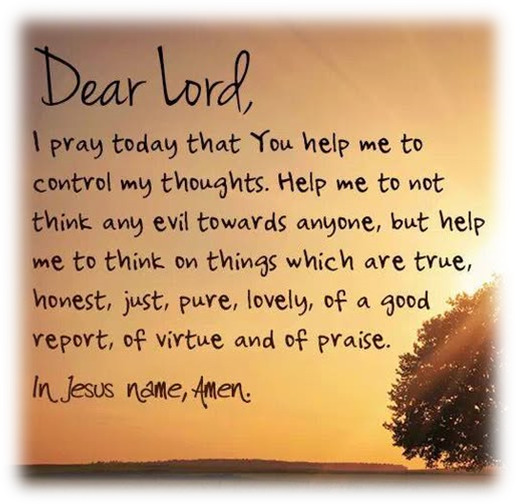 Dear Lord,
I pray today that You help me to
control my thoughts. Help me to not
think any evil towards anyone, but help
me to think on things which are true,
honest, just, pure, lovely, of a good
report, of virtue and of praise.
In Jesus name, Amen.